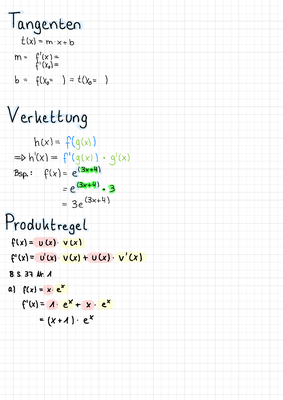 Tangenten
t(x) = m · x + b
m = f'(x) =
f'(x₀) =
b = f(x₀= ) = t(x₀= )
Verkettung
h(x) = f(g(x))
⇒ h'(x) = f'(g(x)) · g'(x)
Bsp.: f(x) = e^(3x+4)
= e^(3x+4) · 3
= 3e^(3x+4)
Produktregel
f(x) = u(x) · v(x)
f'(x) = u'(x) · v(x) + u(x) · v'(x)
B S. 37 Nr. 1
a) f(x) = x · e^x
f'(x) = 1 · e^x + x · e^x
= (x + 1) · e^x